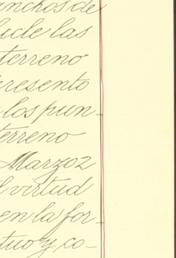 nchos de
ide las
terreno
presento
los pun-
terreno
Marzo 2
virtud
en la for-
tuo y co-